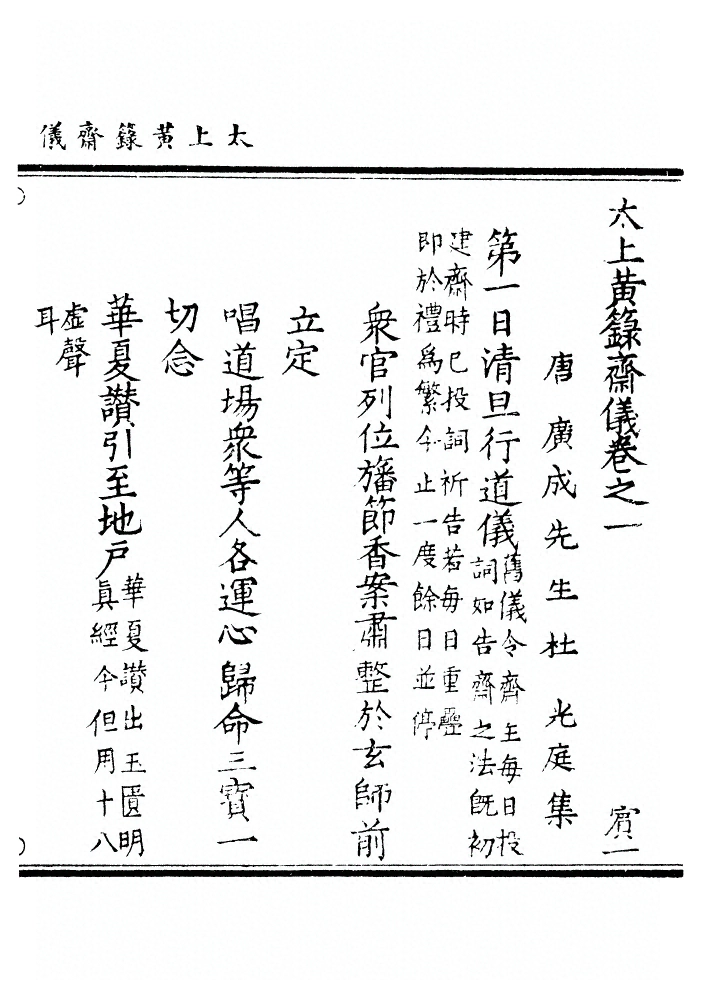 太上黃籙齋儀
太上黃籙齋儀卷之一 賓一
唐廣成先生杜光庭集
第一日清旦行道儀
舊儀令齋主每日投
詞如告齋之法旣初
建齋時已投詞祈告若每日重疊
即於禮爲繁今止一度餘日並停
衆官列位旛節香案肅整於玄師前
立定
唱道場衆等人各運心歸命三寶一
切念
華夏讃引至地戶
華夏讃出玉匱明
眞經今但用十八
虛聲
耳